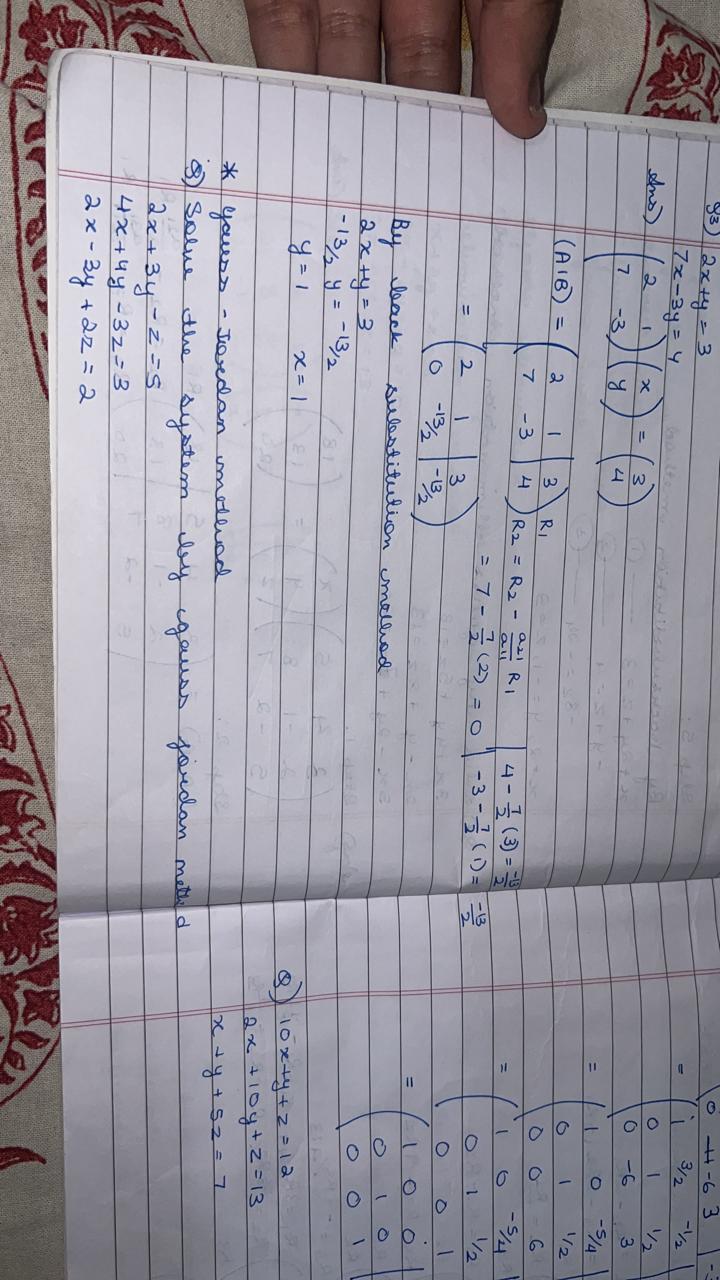 Q3) 2x + y = 3
7x - 3y = 4
Ans) ( 2 1
7 -3 ) ( x
y ) = ( 3
4 )
(A|B) = ( 2 1 | 3
7 -3 | 4 ) R1
R2 = R2 - a21/a11 R1
= 7 - 7/2 (2) = 0 | 4 - 7/2 (3) = -13/2
-3 - 7/2 (1) = -13/2
= ( 2 1 | 3
0 -13/2 | -13/2 )
By back substitution method
2x + y = 3
-13/2 y = -13/2
y = 1 x = 1
* Gauss - Jordan method
Q) Solve the system by gauss jordan method
2x + 3y - z = 5
4x + 4y - 3z = 3
2x - 3y + 2z = 2
0 -6 3
= ( 1 3/2 -1/2
0 1 1/2
0 -6 3
= ( 1 0 -5/4
0 1 1/2
0 0 6
= ( 1 0 -5/4
0 1 1/2
0 0 1
= ( 1 0 0
0 1 0
0 0 1
Q) 10x + y + z = 12
2x + 10y + z = 13
x + y + 5z = 7